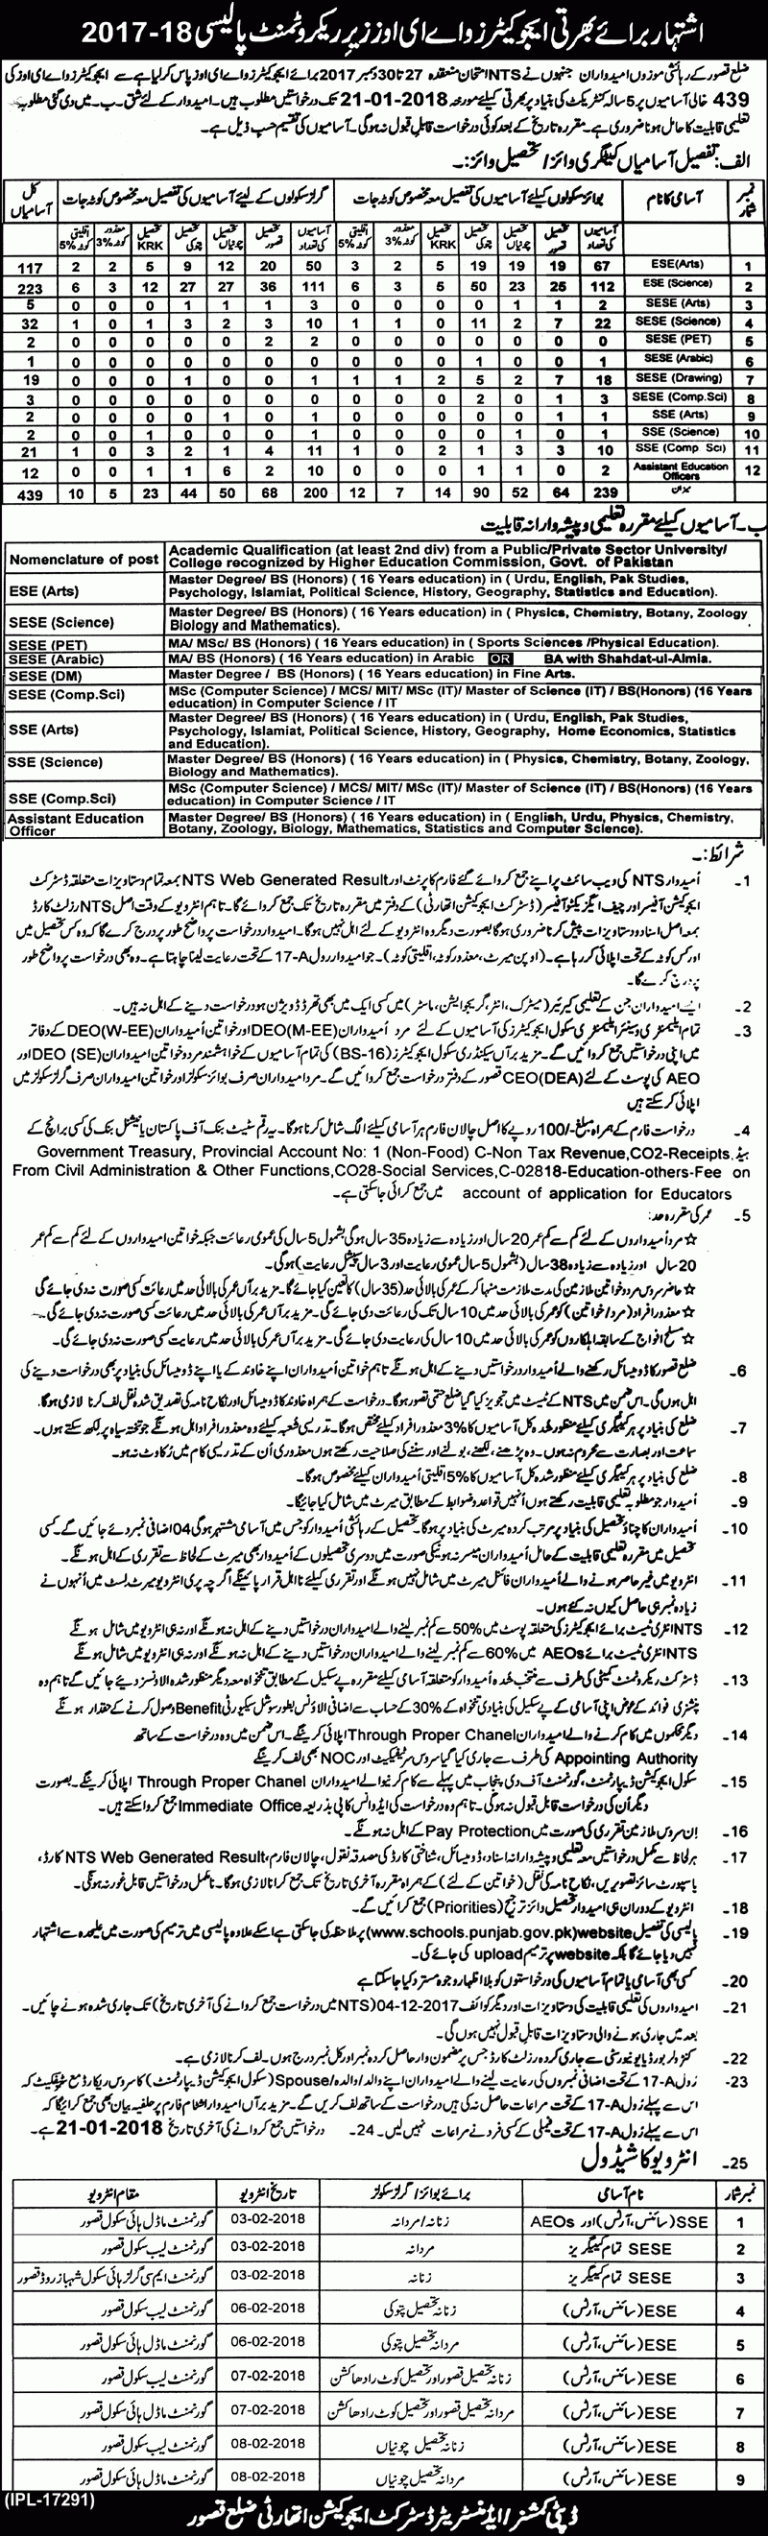 اشتہار برائے بھرتی ایجوکیٹرز و اے ای اوز زیرِ ریکروٹمنٹ پالیسی 18-2017
ضلع قصور کے رہائشی موزوں امیدواران جنہوں نے NTS امتحان منعقدہ 27 تا 30 دسمبر 2017 برائے ایجوکیٹرز و اے ای اوز پاس کر لیا ہے سے ایجوکیٹرز و اے ای اوز کی
439 خالی آسامیوں پر 5 سالہ کنٹریکٹ کی بنیاد پر بھرتی کیلئے مورخہ 21-01-2018 تک درخواستیں مطلوب ہیں۔ امیدوار کے لئے شق۔ب۔ میں دی گئی مطلوبہ
تعلیمی قابلیت کا حامل ہونا ضروری ہے۔ مقررہ تاریخ کے بعد کوئی درخواست قابل قبول نہ ہوگی۔ آسامیوں کی تقسیم حسب ذیل ہے۔
الف: تفصیل آسامیاں کیٹگری وائز/تحصیل وائز:۔
نمبر شمار | آسامی کا نام | بوائز سکولوں کیلئے آسامیوں کی تفصیل معہ مخصوص کوٹہ جات | گرلز سکولوں کے لیئے آسامیوں کی تفصیل معہ مخصوص کوٹہ جات | کل آسامیاں
آسامیوں کی تعداد | تحصیل قصور | تحصیل چونیاں | تحصیل پتوکی | تحصیل KRK | معذور کوٹہ 3% | اقلیتی کوٹہ 5% | آسامیوں کی تعداد | تحصیل قصور | تحصیل چونیاں | تحصیل پتوکی | تحصیل KRK | معذور کوٹہ 3% | اقلیتی کوٹہ 5%
1 | ESE(Arts) | 67 | 19 | 19 | 19 | 5 | 2 | 3 | 50 | 20 | 12 | 9 | 5 | 2 | 2 | 117
2 | ESE (Science) | 112 | 25 | 23 | 50 | 5 | 3 | 6 | 111 | 36 | 27 | 27 | 12 | 3 | 6 | 223
3 | SESE (Arts) | 2 | 1 | 1 | 0 | 0 | 0 | 0 | 3 | 1 | 1 | 1 | 0 | 0 | 0 | 5
4 | SESE (Science) | 22 | 7 | 2 | 11 | 0 | 1 | 1 | 10 | 3 | 2 | 3 | 1 | 0 | 1 | 32
5 | SESE (PET) | 0 | 0 | 0 | 0 | 0 | 0 | 0 | 2 | 2 | 0 | 0 | 0 | 0 | 0 | 2
6 | SESE (Arabic) | 1 | 0 | 0 | 1 | 0 | 0 | 0 | 0 | 0 | 0 | 0 | 0 | 0 | 0 | 1
7 | SESE (Drawing) | 18 | 7 | 2 | 5 | 2 | 1 | 1 | 1 | 0 | 0 | 1 | 0 | 0 | 0 | 19
8 | SESE (Comp.Sci) | 3 | 1 | 0 | 2 | 0 | 0 | 0 | 0 | 0 | 0 | 0 | 0 | 0 | 0 | 3
9 | SSE (Arts) | 1 | 1 | 0 | 0 | 0 | 0 | 0 | 1 | 0 | 1 | 0 | 0 | 0 | 0 | 2
10 | SSE (Science) | 1 | 0 | 1 | 0 | 0 | 0 | 0 | 1 | 0 | 0 | 0 | 1 | 0 | 0 | 2
11 | SSE (Comp Sci) | 10 | 3 | 3 | 1 | 2 | 0 | 1 | 11 | 4 | 1 | 2 | 3 | 0 | 1 | 21
12 | Assistant Education Officers | 2 | 0 | 1 | 1 | 0 | 0 | 0 | 10 | 2 | 6 | 1 | 1 | 0 | 0 | 12
میزان | 239 | 64 | 52 | 90 | 14 | 7 | 12 | 200 | 68 | 50 | 44 | 23 | 5 | 10 | 439
ب۔ آسامیوں کیلئے مقررہ تعلیمی و پیشہ وارانہ قابلیت
Nomenclature of post | Academic Qualification (at least 2nd div) from a Public/Private Sector University/
College recognized by Higher Education Commission, Govt. of Pakistan
ESE (Arts) | Master Degree/ BS (Honors) ( 16 Years education) in ( Urdu, English, Pak Studies,
Psychology, Islamiat, Political Science, History, Geography, Statistics and Education).
SESE (Science) | Master Degree/ BS (Honors) ( 16 Years education) in ( Physics, Chemistry, Botany, Zoology
Biology and Mathematics).
SESE (PET) | MA/ MSc/ BS (Honors) ( 16 Years education) in ( Sports Sciences /Physical Education).
SESE (Arabic) | MA/ BS (Honors) ( 16 Years education) in Arabic OR BA with Shahdat-ul-Almia.
SESE (DM) | Master Degree / BS (Honors) ( 16 Years education) in Fine Arts.
SESE (Comp.Sci) | MSc (Computer Science) / MCS/ MIT/ MSc (IT)/ Master of Science (IT) / BS(Honors) (16 Years
education) in Computer Science / IT
SSE (Arts) | Master Degree/ BS (Honors) ( 16 Years education) in ( Urdu, English, Pak Studies,
Psychology, Islamiat, Political Science, History, Geography, Home Economics, Statistics
and Education).
SSE (Science) | Master Degree/ BS (Honors) ( 16 Years education) in ( Physics, Chemistry, Botany, Zoology,
Biology and Mathematics).
SSE (Comp.Sci) | MSc (Computer Science) / MCS/ MIT/ MSc (IT)/ Master of Science (IT) / BS(Honors) (16 Years
education) in Computer Science / IT
Assistant Education Officer | Master Degree/ BS (Honors) ( 16 Years education) in ( English, Urdu, Physics, Chemistry,
Botany, Zoology, Biology, Mathematics, Statistics and Computer Science).
شرائط:۔
1۔ امیدوار NTS کی ویب سائٹ پر اپنے جمع کروائے گئے فارم کا پرنٹ اور NTS Web Generated Result بمعہ تمام دستاویزات متعلقہ ڈسٹرکٹ
ایجوکیشن آفیسر اور چیف ایگزیکٹو آفیسر (ڈسٹرکٹ ایجوکیشن اتھارٹی) کے دفتر میں مقررہ تاریخ تک جمع کروائے گا۔ تاہم انٹرویو کے وقت اصل NTS رزلٹ کارڈ
بمعہ اصل اسناد و دستاویزات پیش کرنا ضروری ہوگا بصورت دیگر وہ انٹرویو کے لئے اہل نہیں ہوگا۔ امیدوار درخواست پر واضح طور پر درج کرے گا کہ وہ کس تحصیل میں
اور کس کوٹہ کے تحت اپلائی کر رہا ہے۔ (اوپن میرٹ، معذور کوٹہ، اقلیتی کوٹہ)۔ جو امیدوار رول A-17 کے تحت رعایت لینا چاہتا ہے۔ وہ بھی درخواست پر واضح طور
پر درج کرے گا۔
2۔ ایسے امیدواران جن کے تعلیمی کیرئیر (میٹرک، انٹر، گریجوایشن، ماسٹر) میں کسی ایک میں بھی تھرڈ ڈویژن ہو درخواست دینے کے اہل نہ ہیں۔
3۔ تمام ایلیمنٹری و سینئر ایلیمنٹری سکول ایجوکیٹرز کی آسامیوں کے لئے مرد امیدواران DEO(M-EE) اور خواتین امیدواران DEO(W-EE) کے دفاتر
میں اپنی درخواستیں جمع کروائیں گے۔ مزید برآں سیکنڈری سکول ایجوکیٹرز (BS-16) کی تمام آسامیوں کے خواہشمند مرد و خواتین امیدواران DEO (SE) اور
AEO کی پوسٹ کے لئے CEO(DEA) قصور کے دفتر درخواست جمع کروائیں گے۔ مرد امیدواران صرف بوائز سکولز اور خواتین امیدواران صرف گرلز سکولز میں
اپلائی کر سکتے ہیں
4۔ درخواست فارم کے ہمراہ مبلغ -/100 روپے کا اصل چالان فارم ہر آسامی کیلئے الگ شامل کرنا ہوگا۔ یہ رقم سٹیٹ بنک آف پاکستان یا نیشنل بنک کی کسی برانچ کے
ہیڈ Government Treasury, Provincial Account No: 1 (Non-Food) C-Non Tax Revenue,CO2-Receipts
From Civil Administration & Other Functions,CO28-Social Services,C-02818-Education-others-Fee on
account of application for Educators میں جمع کرائی جاسکتی ہے۔
5۔ عمر کی مقررہ حد:
☆ مرد امیدواروں کے لئے کم سے کم عمر 20 سال اور زیادہ سے زیادہ 35 سال ہوگی بشمول 5 سال کی عمومی رعائت جبکہ خواتین امیدواروں کے لئے کم سے کم عمر
20 سال اور زیادہ سے زیادہ 38 سال (بشمول 5 سال عمومی رعایت اور 3 سال سپیشل رعایت) ہوگی۔
☆ حاضر سروس مرد و خواتین ملازمین کی مدت ملازمت منہا کر کے عمر کی بالائی حد (35 سال) کا تعین کیا جائے گا۔ مزید برآں عمر کی بالائی حد میں رعائت کسی صورت نہ دی جائے گی
☆ معذور افراد (مرد/خواتین) کو عمر کی بالائی حد میں 10 سال تک کی رعائت دی جائے گی۔ مزید برآں عمر کی بالائی حد میں رعائت کسی صورت نہ دی جائے گی۔
☆ مسلح افواج کے سابقہ اہلکاروں کو عمر کی بالائی حد میں 10 سال کی رعایت دی جائے گی۔ مزید برآں عمر کی بالائی حد میں رعایت کسی صورت نہ دی جائے گی۔
6۔ ضلع قصور کا ڈومیسائل رکھنے والے امیدوار درخواستیں دینے کے اہل ہونگے تاہم خواتین امیدواران اپنے خاوند کے یا اپنے ڈومیسائل کی بنیاد پر بھی درخواست دینے کی
اہل ہوں گی۔ اس ضمن میں NTS کے ٹیسٹ میں تجویز کیا گیا ضلع حتمی تصور ہوگا۔ درخواست کے ہمراہ خاوند کا ڈومیسائل اور نکاح نامہ کی تصدیق شدہ نقل لف کرنا لازمی ہوگا۔
7۔ ضلع کی بنیاد پر ہر کیٹیگری کیلئے منظور شدہ کل آسامیوں کا 3% معذور افراد کیلئے مختص ہوگا۔ تدریسی شعبہ کیلئے وہ معذور افراد اہل ہونگے جو تختہ سیاہ پر لکھ سکتے ہوں۔
سماعت اور بصارت سے محروم نہ ہوں۔ وہ پڑھنے، لکھنے، بولنے اور سننے کی صلاحیت رکھتے ہوں معذوری اُن کے تدریسی کام میں رکاوٹ نہ ہو۔
8۔ ضلع کی بنیاد پر ہر کیٹیگری کیلئے منظور شدہ کل آسامیوں کا 5% اقلیتی امیدواران کیلئے مخصوص ہوگا۔
9۔ امیدوار جو مطلوبہ تعلیمی قابلیت رکھتے ہوں انہیں قواعد و ضوابط کے مطابق میرٹ میں شامل کیا جائیگا۔
10۔ امیدواران کا چناؤ تحصیل کی بنیاد پر مرتب کردہ میرٹ کی بنیاد پر ہوگا۔ تحصیل کے رہائشی امیدوار کو جس میں آسامی مشتہر ہوگی 04 اضافی نمبر دئے جائیں گے۔ کسی
تحصیل میں مقررہ تعلیمی قابلیت کے حامل امیدواران میسر نہ ہونیکی صورت میں دوسری تحصیلوں کے امیدوار بھی میرٹ کے لحاظ سے تقرری کے اہل ہونگے۔
11۔ انٹرویو میں غیر حاضر ہونے والے امیدواران فائنل میرٹ میں شامل نہیں ہونگے اور تقرری کیلئے نااہل قرار پائینگے اگرچہ پری انٹرویو میرٹ لسٹ میں اُنہوں نے
زیادہ نمبر ہی حاصل کیوں نہ کئے ہوں۔
12۔ NTS انٹری ٹیسٹ برائے ایجوکیٹرز کی متعلقہ پوسٹ میں 50% سے کم نمبر لینے والے امیدواران درخواستیں دینے کے اہل نہ ہونگے اور نہ ہی انٹرویو میں شامل ہونگے
NTS انٹری ٹیسٹ برائے AEOs میں 60% سے کم نمبر لینے والے امیدواران درخواستیں دینے کے اہل نہ ہونگے اور نہ ہی انٹرویو میں شامل ہونگے
13۔ ڈسٹرکٹ ریکروٹمنٹ کمیٹی کی طرف سے منتخب شدہ امیدوار کو متعلقہ آسامی کیلئے مقررہ پے سکیل کے مطابق تنخواہ معہ دیگر منظور شدہ الاؤنسز دیئے جائیں گے تاہم وہ
پنشنری فوائد کے عوض اپنی آسامی کے پے سکیل کی بنیادی تنخواہ کے 30% کے حساب سے اضافی الاؤنس بطور سوشل سکیورٹی Benefit وصول کرنے کے حقدار ہونگے
14۔ دیگر محکموں میں کام کرنے والے امیدواران Through Proper Chanel اپلائی کرینگے۔ اس ضمن میں وہ درخواست کے ساتھ
Appointing Authority کی طرف سے جاری کیا گیا سروس سرٹیفیکیٹ اور NOC بھی لف کرینگے
15۔ سکول ایجوکیشن ڈیپارٹمنٹ، گورنمنٹ آف دی پنجاب میں پہلے سے کام کرنیوالے امیدواران Through Proper Chanel اپلائی کرینگے۔ بصورت
دیگر اُن کی درخواست قابل قبول نہ ہوگی۔ تاہم وہ درخواست کی ایڈوانس کاپی بذریعہ Immediate Office جمع کروا سکتے ہیں۔
16۔ اِن سروس ملازمین تقرری کی صورت میں Pay Protection کے اہل نہ ہونگے۔
17۔ ہر لحاظ سے مکمل درخواستیں معہ تعلیمی و پیشہ وارانہ اسناد، ڈومیسائل، شناختی کارڈ کی مصدقہ نقول، چالان فارم، NTS Web Generated Result کارڈ،
پاسپورٹ سائز تصویریں، نکاح نامہ کی نقل (خواتین کے لئے) کے ہمراہ مقررہ آخری تاریخ تک جمع کرانا لازمی ہوگا۔ نامکمل درخواستیں قابل غور نہ ہونگی۔
18۔ انٹرویو کے دوران ہی امیدوار تحصیل وائز ترجیح (Priorities) جمع کرائیں گے۔
19۔ پالیسی کی تفصیل website(www.schools.punjab.gov.pk) پر ملاحظہ کی جاسکتی ہے اسکے علاوہ پالیسی میں ترمیم کی صورت میں علیحدہ سے اشتہار
نہیں دیا جائے گا بلکہ website پر ترمیم upload کی جائے گی۔
20۔ کسی بھی آسامی یا تمام آسامیوں کی درخواستوں کو بلا اظہار وجوہ مسترد کیا جاسکتا ہے
21۔ امیدواروں کی تعلیمی قابلیت کی دستاویزات اور دیگر کوائف 04-12-2017 (NTS میں درخواست جمع کروانے کی آخری تاریخ) تک جاری شدہ ہونے چاہئیں۔
بعد میں جاری ہونے والی دستاویزات قابل قبول نہیں ہوں گی۔
22۔ کنٹرولر بورڈ یا یونیورسٹی سے جاری کردہ رزلٹ کارڈ جس پر مضمون وار حاصل کردہ نمبر اور کل نمبر درج ہوں۔ لف کرنا لازمی ہے۔
23۔ رُول A-17 کے تحت اضافی نمبروں کی رعایت لینے والے امیدواران اپنے والد/والدہ/Spouse (سکول ایجوکیشن ڈیپارٹمنٹ) کا سروس ریکارڈ مع سرٹیفکیٹ کہ
اس سے پہلے رُول A-17 کے تحت مراعات حاصل نہ کی ہیں درخواست کے ساتھ لف کریں گے۔ مزید برآں امیدوار اشٹام فارم پر حلفیہ بیان بھی جمع کرائیگا کہ
اس سے پہلے رُول A-17 کے تحت فیملی کے کسی فرد نے مراعات نہیں لیں۔ 24۔ درخواستیں جمع کروانے کی آخری تاریخ 21-01-2018 ہے۔
25۔ انٹرویو کا شیڈول
نمبر شمار | نام آسامی | برائے بوائز/گرلز سکولز | تاریخ انٹرویو | مقام انٹرویو
1 | SSE (سائنس، آرٹس) اور AEOs | زنانہ/مردانہ | 03-02-2018 | گورنمنٹ ماڈل ہائی سکول قصور
2 | SESE تمام کیٹیگریز | مردانہ | 03-02-2018 | گورنمنٹ لیب سکول قصور
3 | SESE تمام کیٹیگریز | زنانہ | 03-02-2018 | گورنمنٹ ایم سی گرلز ہائی سکول شہباز روڈ قصور
4 | ESE (سائنس، آرٹس) | زنانہ تحصیل پتوکی | 06-02-2018 | گورنمنٹ لیب سکول قصور
5 | ESE (سائنس، آرٹس) | مردانہ تحصیل پتوکی | 06-02-2018 | گورنمنٹ ماڈل ہائی سکول قصور
6 | ESE (سائنس، آرٹس) | زنانہ تحصیل قصور اور تحصیل کوٹ رادھاکشن | 07-02-2018 | گورنمنٹ لیب سکول قصور
7 | ESE (سائنس، آرٹس) | مردانہ تحصیل قصور اور تحصیل کوٹ رادھاکشن | 07-02-2018 | گورنمنٹ ماڈل ہائی سکول قصور
8 | ESE (سائنس، آرٹس) | زنانہ تحصیل چونیاں | 08-02-2018 | گورنمنٹ لیب سکول قصور
9 | ESE (سائنس، آرٹس) | مردانہ تحصیل چونیاں | 08-02-2018 | گورنمنٹ ماڈل ہائی سکول قصور
(IPL-17291)
ڈپٹی کمشنر/ایڈمنسٹریٹر ڈسٹرکٹ ایجوکیشن اتھارٹی ضلع قصور